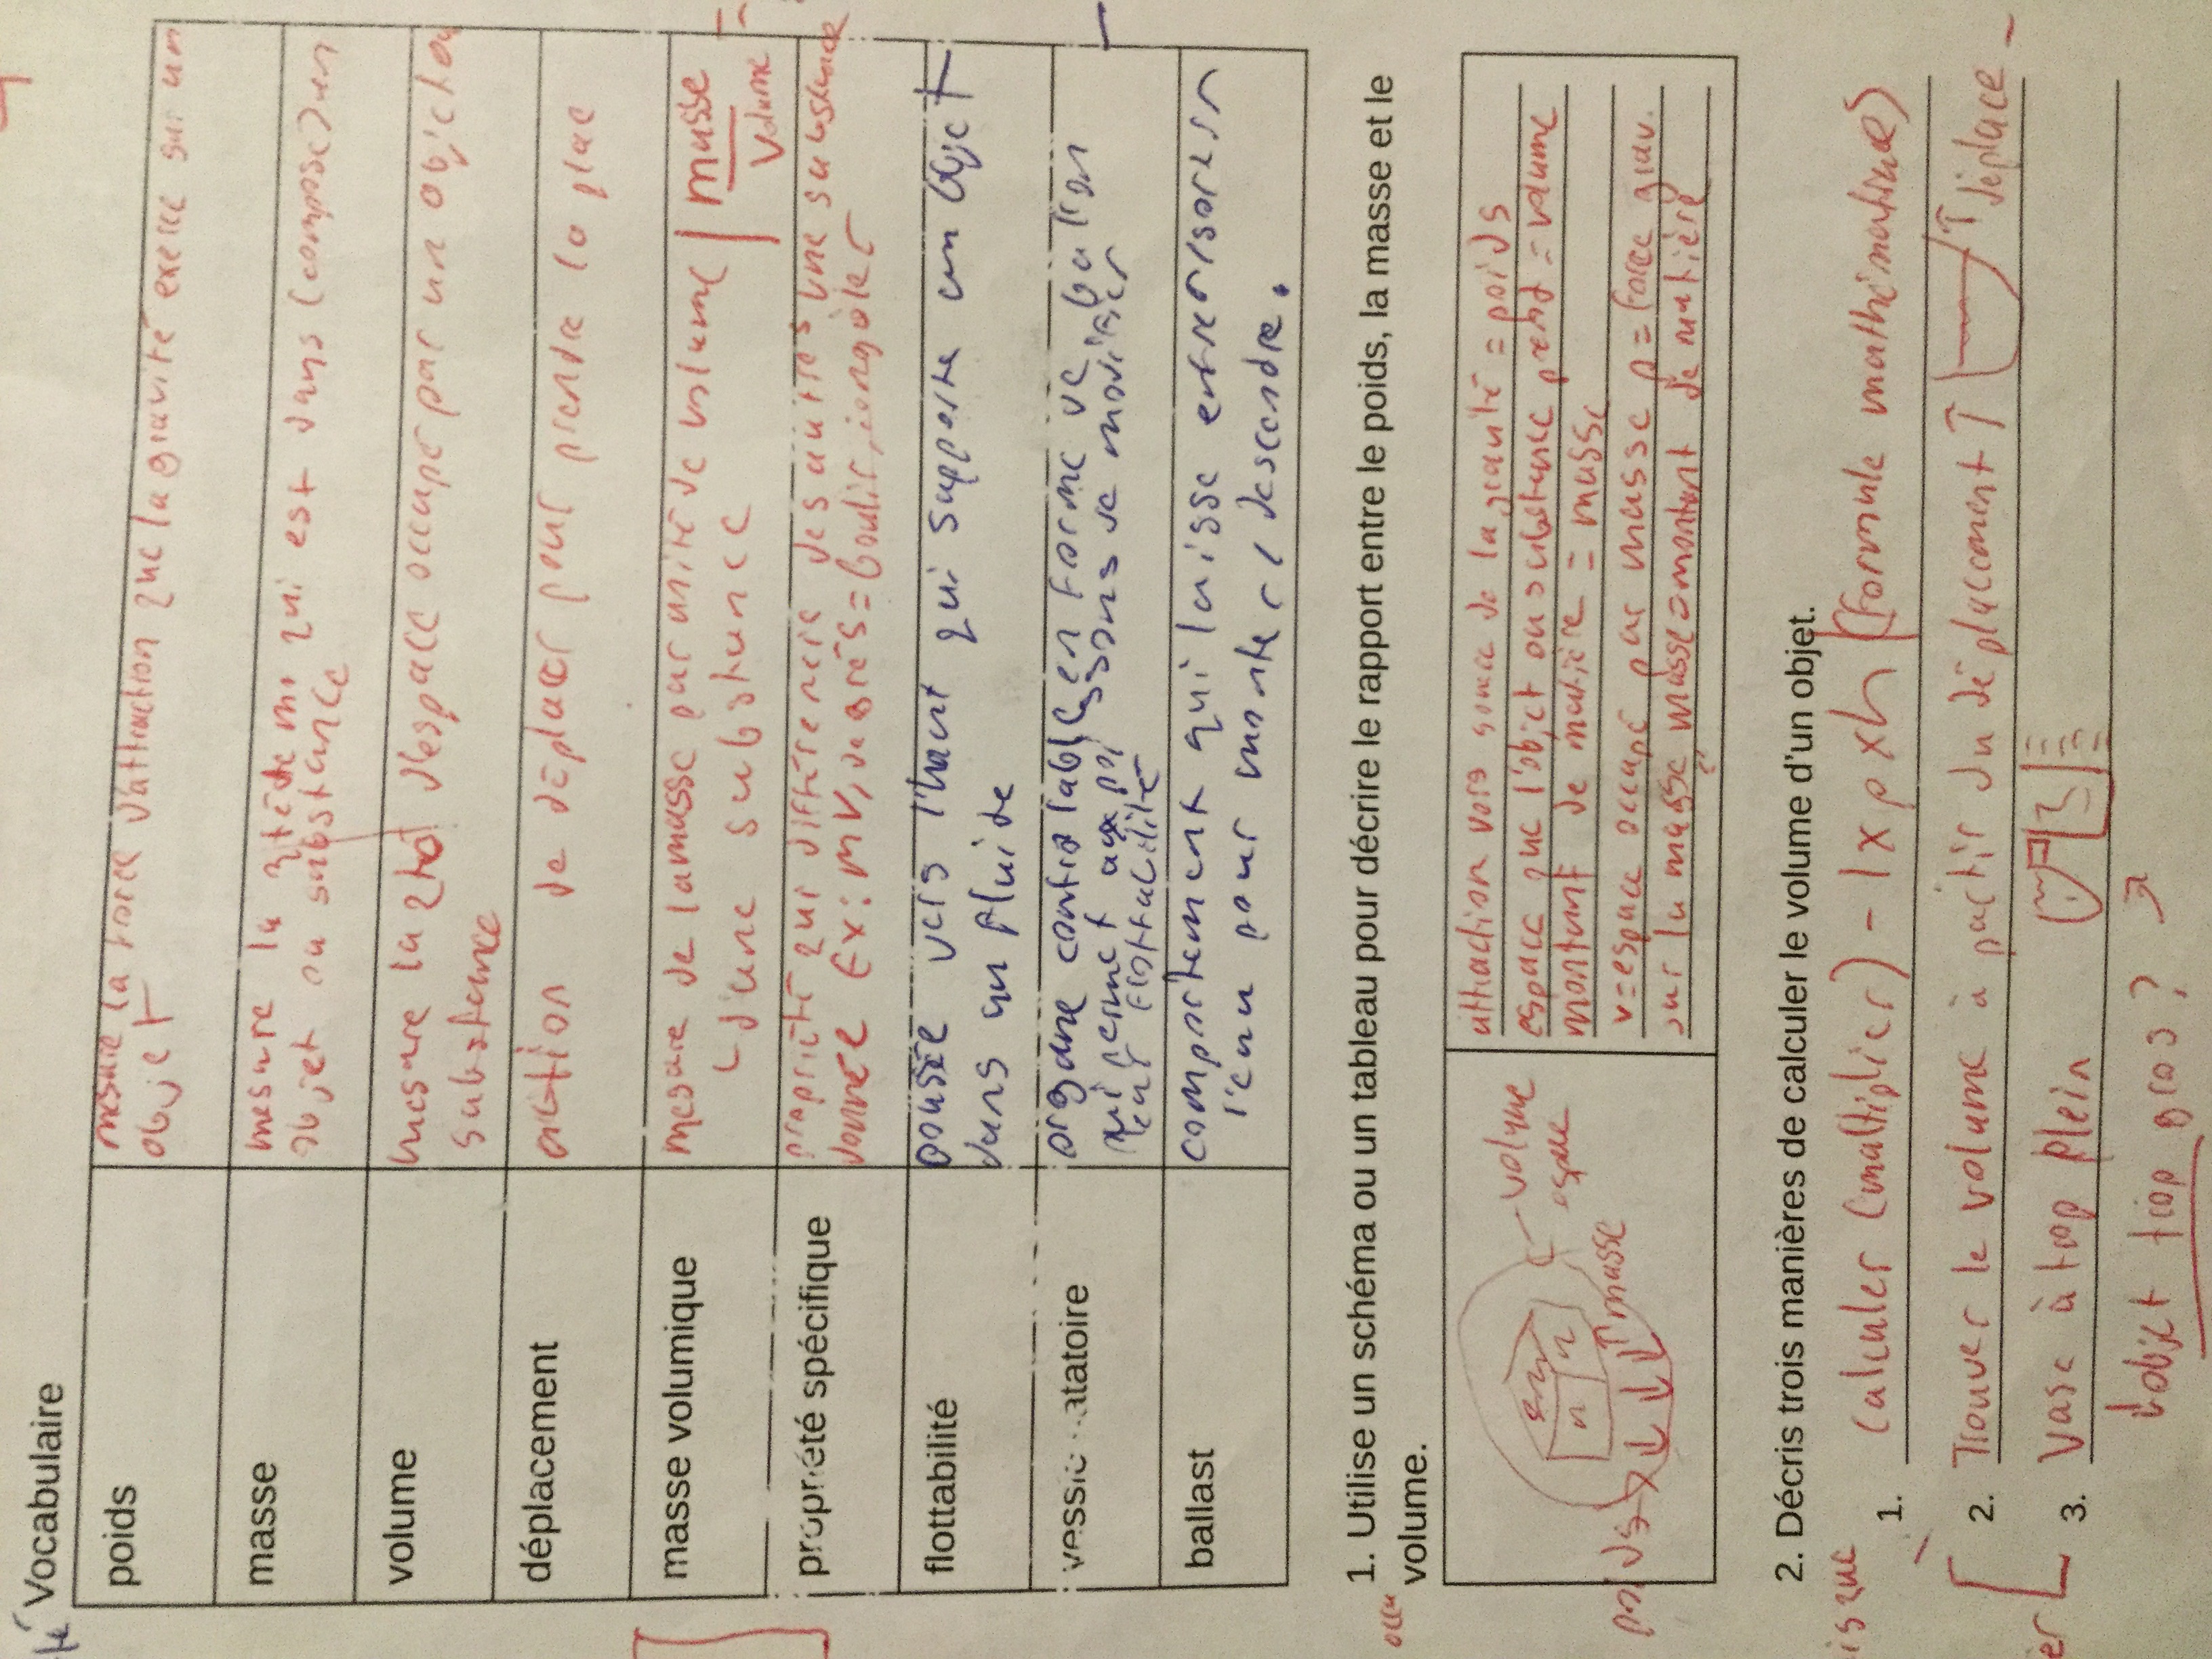 Vocabulaire
poids
mesure la force d'attraction que la gravité exerce sur un
objet
masse
mesure la qtété de m. qui est dans (compose) un
objet ou substance
volume
mesure la qté d'espace occupé par un objet ou
substance
déplacement
action de déplacer pour prendre la place
masse volumique
mesure de la masse par unité de volume | masse
d'une substance volume
propriété spécifique
propriété qui différencie des autres une substance
donnée Ex: mv, degrés = bouillir,
flottabilité
poussée vers l'haut qui supporte un objet
dans un fluide
vessie natatoire
organe contrôlable en forme de ballon
qui permet aux poissons de modifier
leur flottabilité
ballast
compartiment qui laisse entrer/sortir
l'eau pour monter/descendre.
1. Utilise un schéma ou un tableau pour décrire le rapport entre le poids, la masse et le
volume.
volume
espace
masse
poids
attraction vers de la gravité = poids
espace que l'objet ou substance prend = volume
montant de matière = masse
v = espace occupé par masse p = force grav.
sur la masse masse = montant de matière
2. Décris trois manières de calculer le volume d'un objet.
1. Calculer (multiplier) - l x p x h [formule mathématique)
2. Trouver le volume à partir du déplacement
déplace
3. Vase à trop plein
objet trop gros ?